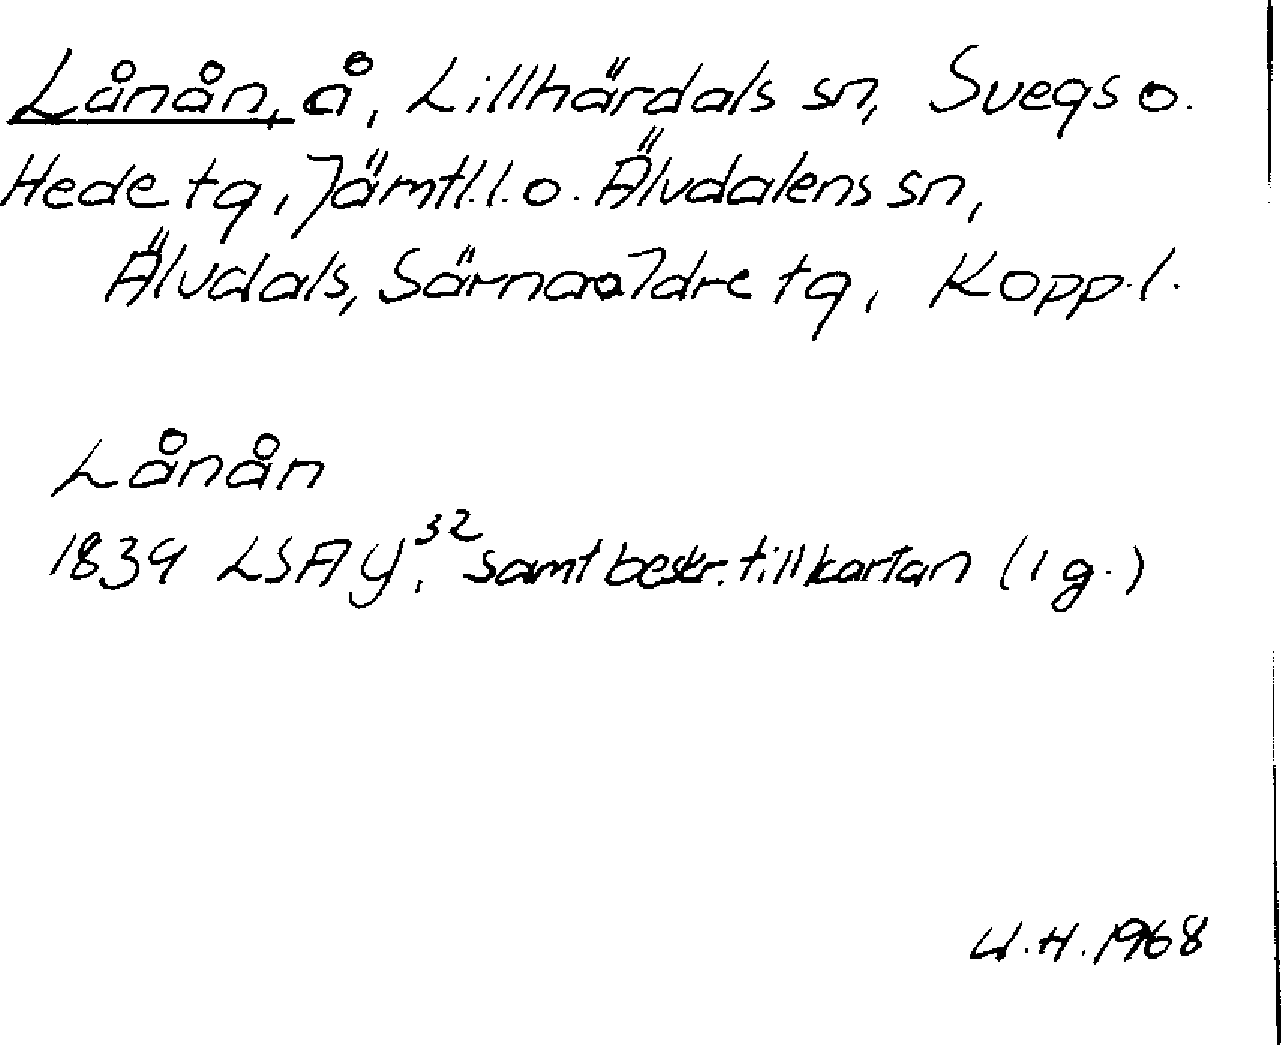 Lånån, å, Lillhärdals sn, Svegs o.
Hede tg, Jämtl.l. o. Älvdalens sn,
Älvdals, Särna o Idre tg, Kopp.l.
Lånån
1839 LSA Y:32 samt beskr. till kartan (1 g.)
U.H. 1968